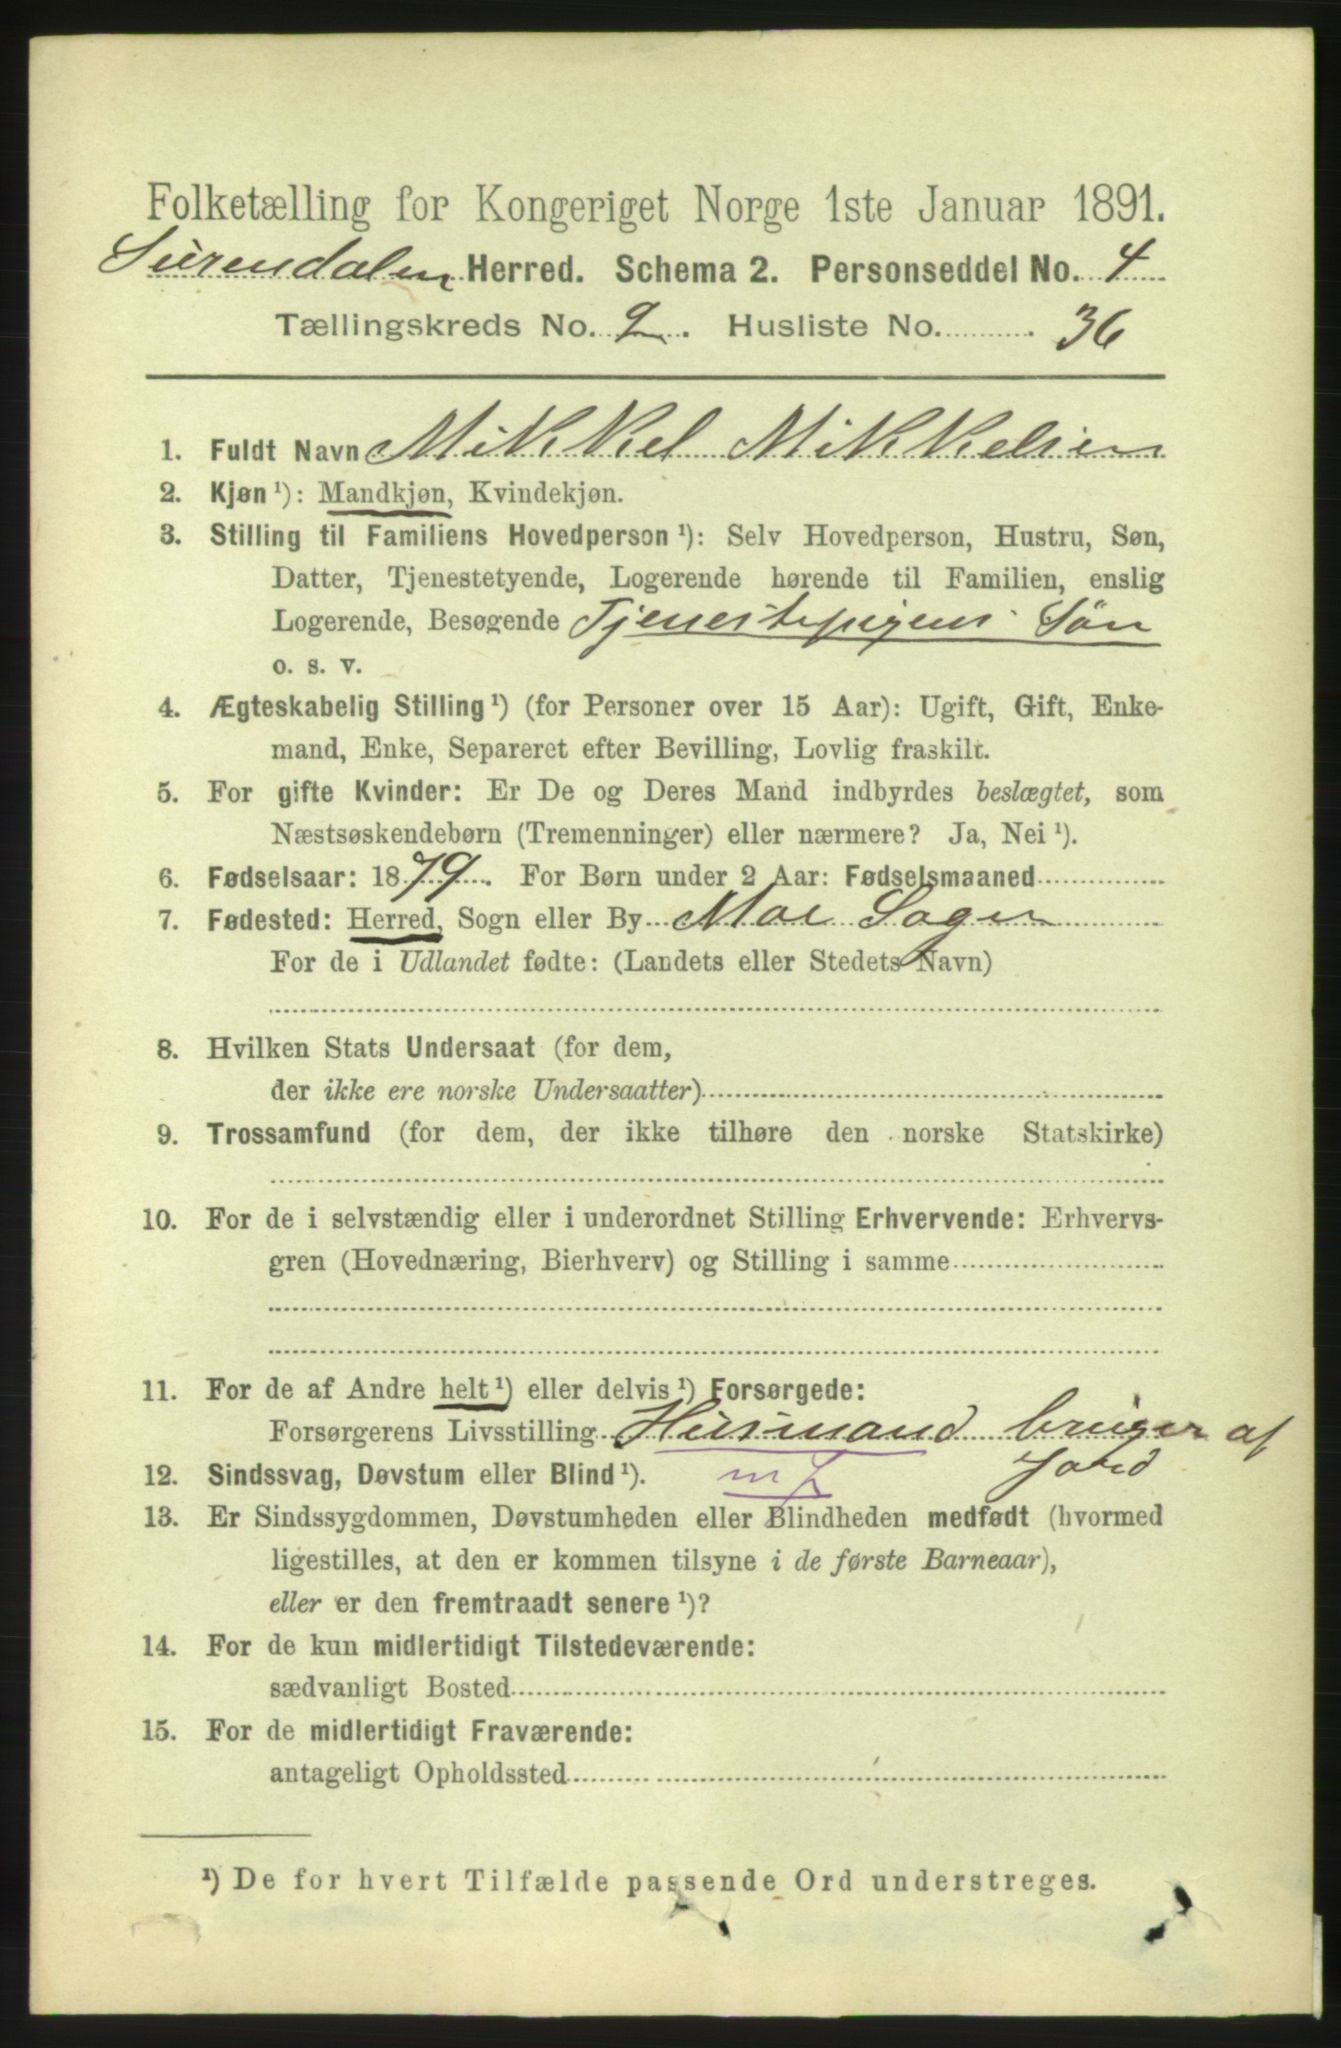 Folketælling for Kongeriget Norge 1ste Januar 1891.
Surendalen Herred. Schema 2. Personseddel No. 4
Tællingskreds No. 2. Husliste No. 36
1. Fuldt Navn Mikkel Mikkelsen
2. Kjøn¹): Mandkjøn, Kvindekjøn.
3. Stilling til Familiens Hovedperson¹): Selv Hovedperson, Hustru, Søn,
Datter, Tjenestetyende, Logerende hørende til Familien, enslig
Logerende, Besøgende Tjenestepigens Sön
o. s. v.
4. Ægteskabelig Stilling¹) (for Personer over 15 Aar): Ugift, Gift, Enke-
mand, Enke, Separeret efter Bevilling, Lovlig fraskilt.
5. For gifte Kvinder: Er De og Deres Mand indbyrdes beslægtet, som
Næstsøskendebørn (Tremenninger) eller nærmere? Ja, Nei¹).
6. Fødselsaar: 1879. For Børn under 2 Aar: Fødselsmaaned
7. Fødested: Herred, Sogn eller By Moe Sogn
For de i Udlandet fødte: (Landets eller Stedets Navn)
8. Hvilken Stats Undersaat (for dem,
der ikke ere norske Undersaatter)
9. Trossamfund (for dem, der ikke tilhøre den norske Statskirke)
10. For de i selvstændig eller i underordnet Stilling Erhvervende: Erhvervs-
gren (Hovednæring, Bierhverv) og Stilling i samme
11. For de af Andre helt¹) eller delvis¹) Forsørgede:
Forsørgerens Livsstilling Husmand bruger af
Jord
12. Sindssvag, Døvstum eller Blind¹).
13. Er Sindssygdommen, Døvstumheden eller Blindheden medfødt (hvormed
ligestilles, at den er kommen tilsyne i de første Barneaar),
eller er den fremtraadt senere¹)?
14. For de kun midlertidigt Tilstedeværende:
sædvanligt Bosted
15. For de midlertidigt Fraværende:
antageligt Opholdssted
¹) De for hvert Tilfælde passende Ord understreges.